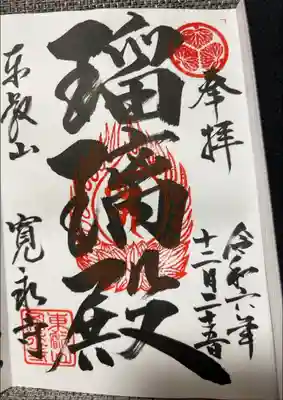 奉拝
令和六年
十二月二
瑠璃殿
東叡山 寛永寺